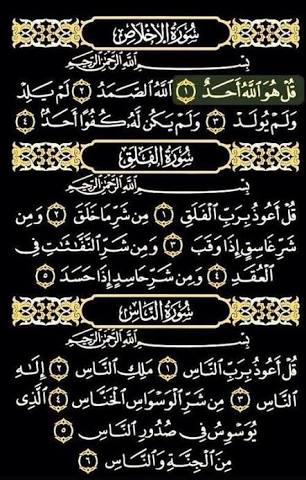 سُورَةُ الإِخْلَاصِ
بِسْمِ اللَّهِ الرَّحْمَٰنِ الرَّحِيمِ
قُلْ هُوَ ٱللَّهُ أَحَدٌ ۝١ ٱللَّهُ ٱلصَّمَدُ ۝٢ لَمْ يَلِدْ
وَلَمْ يُولَدْ ۝٣ وَلَمْ يَكُن لَّهُۥ كُفُوًا أَحَدٌۢ ۝٤
سُورَةُ الْفَلَقِ
بِسْمِ اللَّهِ الرَّحْمَٰنِ الرَّحِيمِ
قُلْ أَعُوذُ بِرَبِّ ٱلْفَلَقِ ۝١ مِن شَرِّ مَا خَلَقَ ۝٢ وَمِن
شَرِّ غَاسِقٍ إِذَا وَقَبَ ۝٣ وَمِن شَرِّ ٱلنَّفَّٰثَٰتِ فِى
ٱلْعُقَدِ ۝٤ وَمِن شَرِّ حَاسِدٍ إِذَا حَسَدَ ۝٥
سُورَةُ النَّاسِ
بِسْمِ اللَّهِ الرَّحْمَٰنِ الرَّحِيمِ
قُلْ أَعُوذُ بِرَبِّ ٱلنَّاسِ ۝١ مَلِكِ ٱلنَّاسِ ۝٢ إِلَٰهِ
ٱلنَّاسِ ۝٣ مِن شَرِّ ٱلْوَسْوَاسِ ٱلْخَنَّاسِ ۝٤ ٱلَّذِى
يُوَسْوِسُ فِى صُدُورِ ٱلنَّاسِ ۝٥
مِنَ ٱلْجِنَّةِ وَٱلنَّاسِ ۝٦